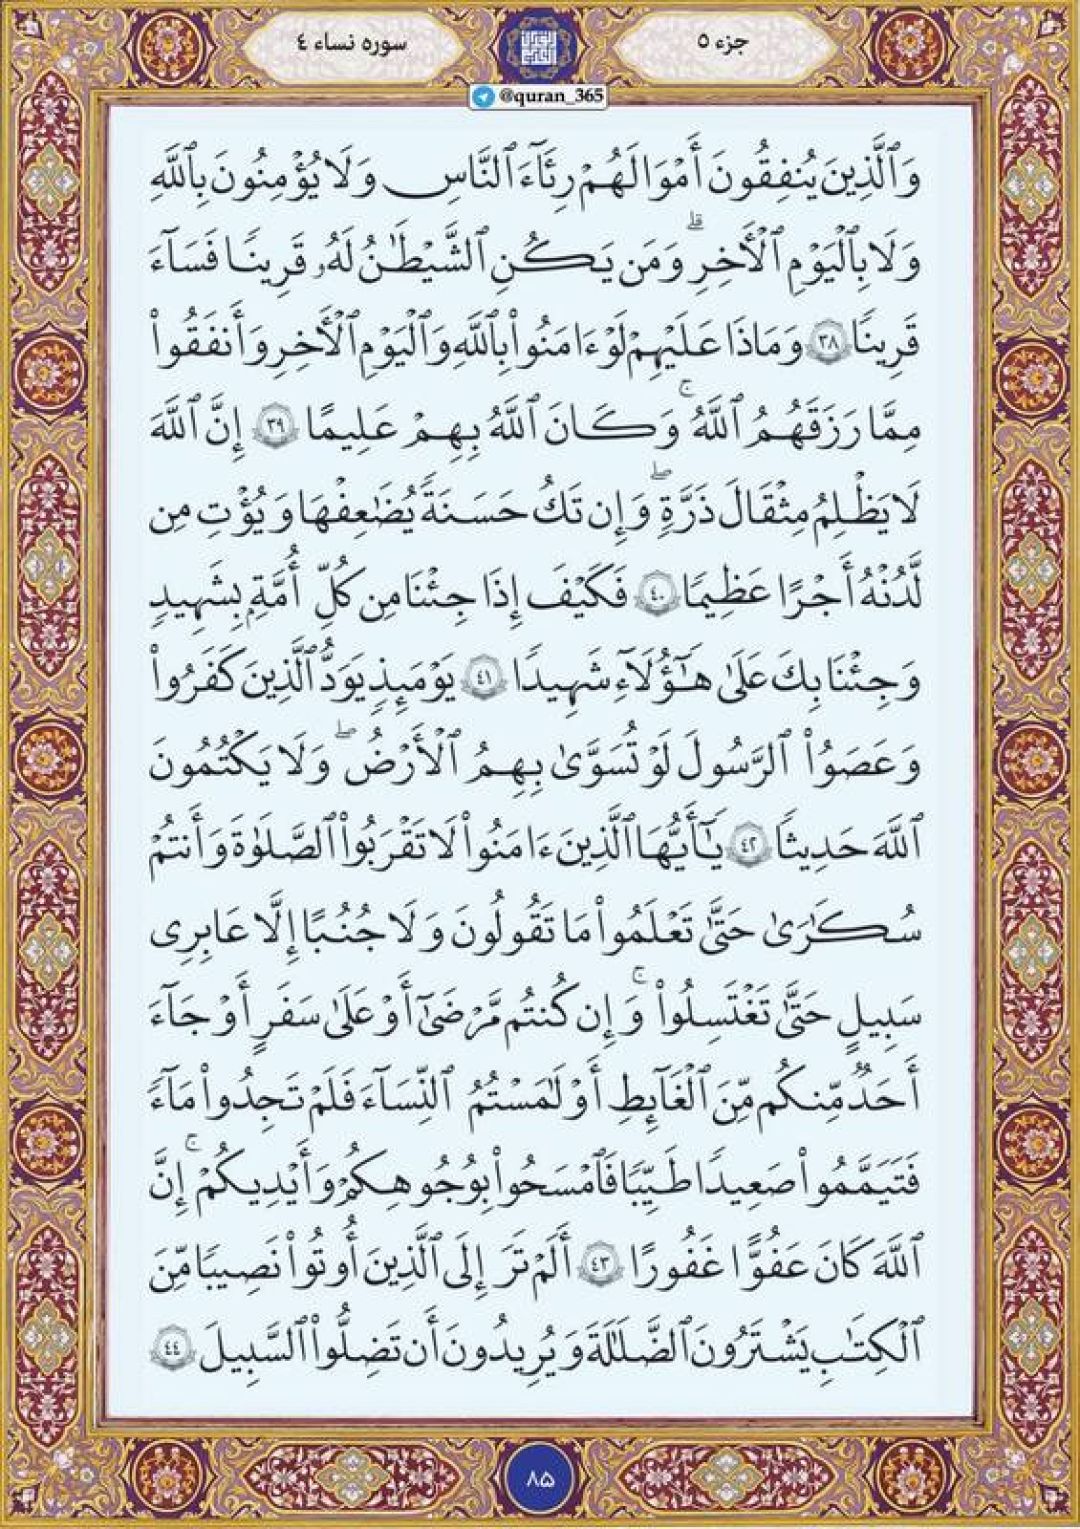 جزء ۵
سوره نساء ٤
@quran_365
وَٱلَّذِينَ يُنفِقُونَ أَمْوَٰلَهُمْ رِئَآءَ ٱلنَّاسِ وَلَا يُؤْمِنُونَ بِٱللَّهِ
وَلَا بِٱلْيَوْمِ ٱلْأَخِرِ ۗ وَمَن يَكُنِ ٱلشَّيْطَٰنُ لَهُۥ قَرِينًا فَسَآءَ
قَرِينًا ٣٨ وَمَاذَا عَلَيْهِمْ لَوْ ءَامَنُوا۟ بِٱللَّهِ وَٱلْيَوْمِ ٱلْأَخِرِ وَأَنفَقُوا۟
مِمَّا رَزَقَهُمُ ٱللَّهُ ۚ وَكَانَ ٱللَّهُ بِهِمْ عَلِيمًا ٣٩ إِنَّ ٱللَّهَ
لَا يَظْلِمُ مِثْقَالَ ذَرَّةٍ ۖ وَإِن تَكُ حَسَنَةً يُضَٰعِفْهَا وَيُؤْتِ مِن
لَّدُنْهُ أَجْرًا عَظِيمًا ٤٠ فَكَيْفَ إِذَا جِئْنَا مِن كُلِّ أُمَّةٍۭ بِشَهِيدٍ
وَجِئْنَا بِكَ عَلَىٰ هَٰٓؤُلَآءِ شَهِيدًا ٤١ يَوْمَئِذٍ يَوَدُّ ٱلَّذِينَ كَفَرُوا۟
وَعَصَوُا۟ ٱلرَّسُولَ لَوْ تُسَوَّىٰ بِهِمُ ٱلْأَرْضُ ۖ وَلَا يَكْتُمُونَ
ٱللَّهَ حَدِيثًا ٤٢ يَٰٓأَيُّهَا ٱلَّذِينَ ءَامَنُوا۟ لَا تَقْرَبُوا۟ ٱلصَّلَوٰةَ وَأَنتُمْ
سُكَٰرَىٰ حَتَّىٰ تَعْلَمُوا۟ مَا تَقُولُونَ وَلَا جُنُبًا إِلَّا عَابِرِى
سَبِيلٍ حَتَّىٰ تَغْتَسِلُوا۟ ۚ وَإِن كُنتُم مَّرْضَىٰٓ أَوْ عَلَىٰ سَفَرٍ أَوْ جَآءَ
أَحَدٌ مِّنكُم مِّنَ ٱلْغَآئِطِ أَوْ لَٰمَسْتُمُ ٱلنِّسَآءَ فَلَمْ تَجِدُوا۟ مَآءً
فَتَيَمَّمُوا۟ صَعِيدًا طَيِّبًا فَٱمْسَحُوا۟ بِوُجُوهِكُمْ وَأَيْدِيكُمْ ۚ إِنَّ
ٱللَّهَ كَانَ عَفُوًّا غَفُورًا ٤٣ أَلَمْ تَرَ إِلَى ٱلَّذِينَ أُوتُوا۟ نَصِيبًا مِّنَ
ٱلْكِتَٰبِ يَشْتَرُونَ ٱلضَّلَٰلَةَ وَيُرِيدُونَ أَن تَضِلُّوا۟ ٱلسَّبِيلَ ٤٤
۸۵